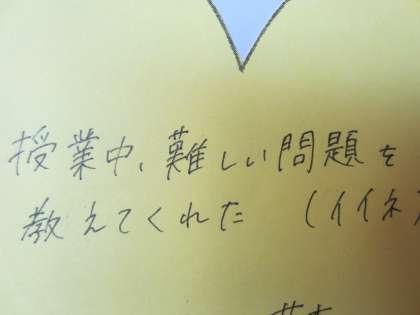 授業中、難しい問題を
教えてくれた (イイネ